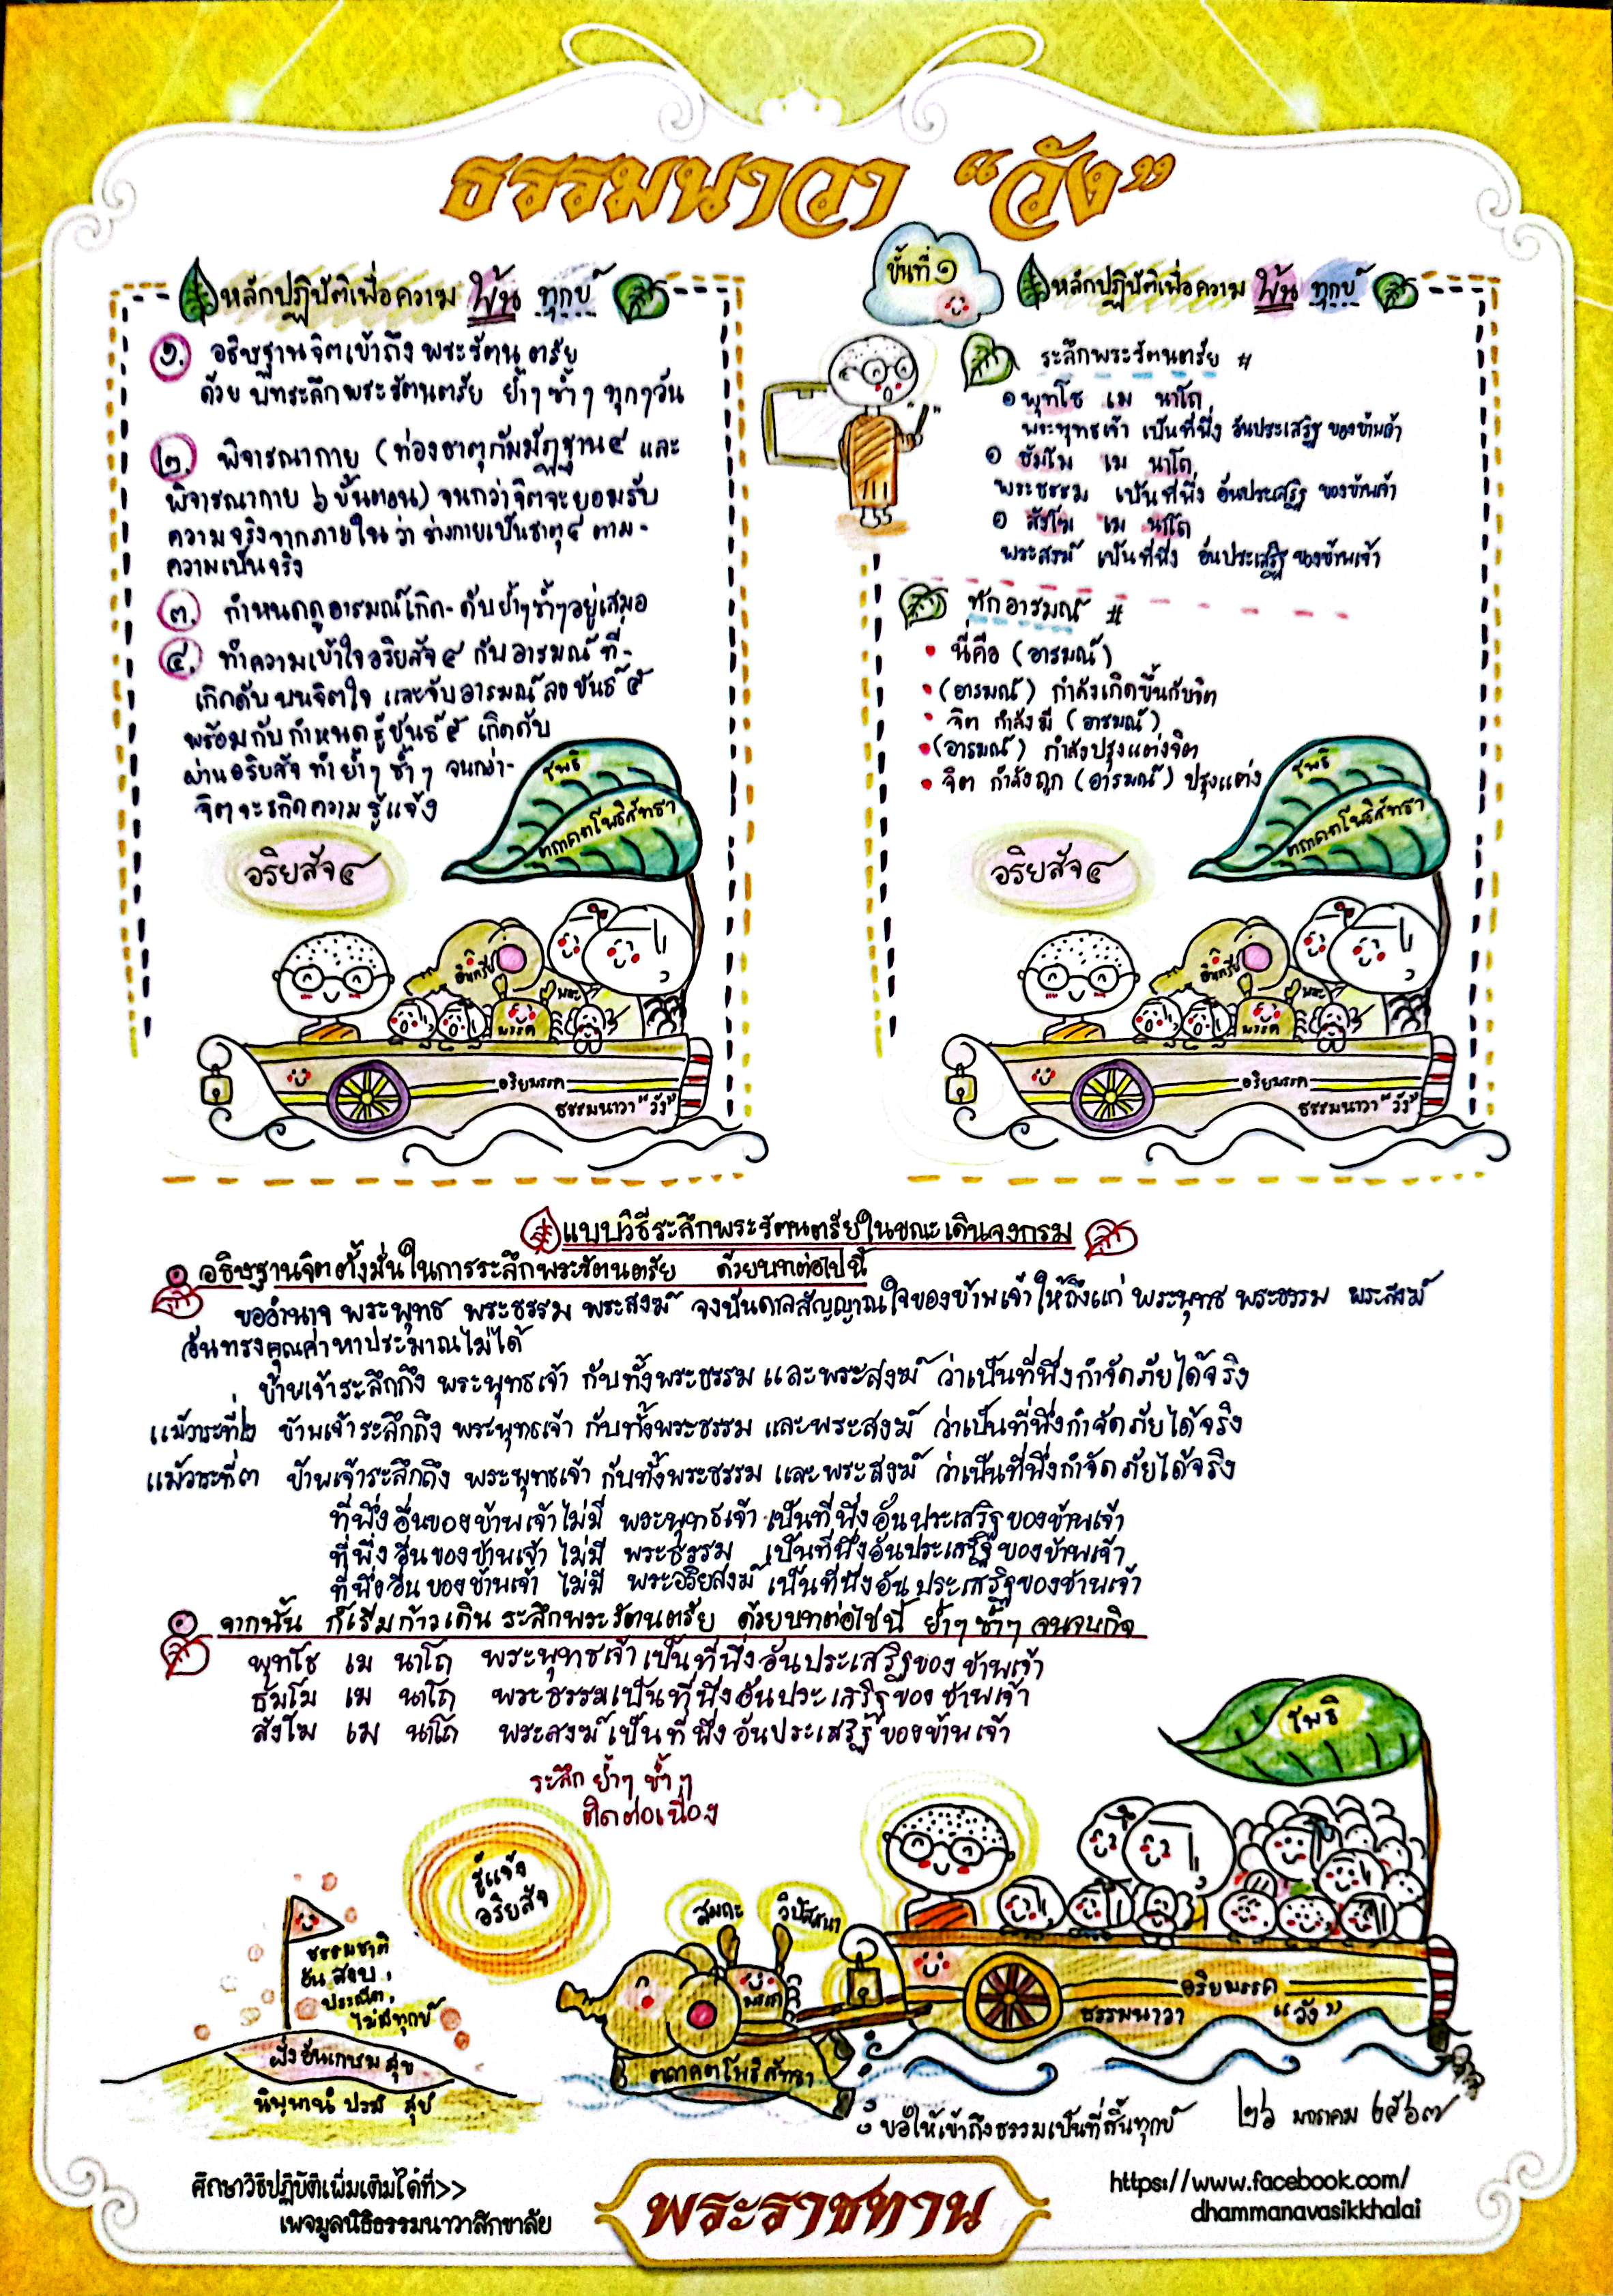 ธรรมนาวา “วัง”
หลักปฏิบัติเพื่อความ พ้น ทุกข์
๑. อธิษฐานจิตเข้าถึง พระรัตนตรัย
ด้วย บทระลึกพระรัตนตรัย ย้ำๆ ซ้ำๆ ทุกๆวัน
๒. พิจารณากาย (ท่องธาตุกัมมัฏฐาน ๔ และ
พิจารณากาย ๖ ขั้นตอน) จนกว่าจิตจะยอมรับ
ความจริงจากภายใน ว่า ร่างกายเป็นธาตุ ๔ ตาม-
ความเป็นจริง
๓. กำหนดดูอารมณ์เกิด-ดับย้ำๆซ้ำๆอยู่เสมอ
๔. ทำความเข้าใจอริยสัจ ๔ กับ อารมณ์ ที่-
เกิดดับ บนจิตใจ และจับอารมณ์ลง ขันธ์ ๕
พร้อมกับกำหนดรู้ขันธ์ ๕ เกิดดับ
ผ่านอริยสัจ ทำย้ำๆ ซ้ำๆ จนกว่า-
จิตจะเกิดความรู้แจ้ง
อริยสัจ ๔
โพธิ
ตถาคตโพธิสัทธา
อินทรีย์
พละ
มรรค
อริยมรรค
ธรรมนาวา “วัง”
ขั้นที่ ๑
หลักปฏิบัติเพื่อความ พ้น ทุกข์
ระลึกพระรัตนตรัย #
๑ พุทโธ เม นาโถ
พระพุทธเจ้า เป็นที่พึ่ง อันประเสริฐ ของข้าพเจ้า
๑ ธัมโม เม นาโถ
พระธรรม เป็นที่พึ่ง อันประเสริฐ ของข้าพเจ้า
๑ สังโฆ เม นาโถ
พระสงฆ์ เป็นที่พึ่ง อันประเสริฐ ของข้าพเจ้า
ทักอารมณ์ #
• นี่คือ (อารมณ์)
• (อารมณ์) กำลังเกิดขึ้นกับจิต
• จิต กำลังมี (อารมณ์)
• (อารมณ์) กำลังปรุงแต่งจิต
• จิต กำลังถูก (อารมณ์) ปรุงแต่ง
อริยสัจ ๔
โพธิ
ตถาคตโพธิสัทธา
อินทรีย์
พละ
มรรค
อริยมรรค
ธรรมนาวา “วัง”
แบบวิธีระลึกพระรัตนตรัยในขณะเดินจงกรม
อธิษฐานจิตตั้งมั่นในการระลึกพระรัตนตรัย ด้วยบทต่อไปนี้
ขออำนาจ พระพุทธ พระธรรม พระสงฆ์ จงบันดาลสัญญาณใจของข้าพเจ้าให้ถึงแก่ พระพุทธ พระธรรม พระสงฆ์
อันทรงคุณค่าหาประมาณไม่ได้
ข้าพเจ้าระลึกถึง พระพุทธเจ้า กับทั้งพระธรรม และพระสงฆ์ ว่าเป็นที่พึ่งกำจัดภัยได้จริง
แม้วาระที่๒ ข้าพเจ้าระลึกถึง พระพุทธเจ้า กับทั้งพระธรรม และพระสงฆ์ ว่าเป็นที่พึ่งกำจัดภัยได้จริง
แม้วาระที่๓ ข้าพเจ้าระลึกถึง พระพุทธเจ้า กับทั้งพระธรรม และพระสงฆ์ ว่าเป็นที่พึ่งกำจัดภัยได้จริง
ที่พึ่งอื่นของข้าพเจ้าไม่มี พระพุทธเจ้า เป็นที่พึ่งอันประเสริฐของข้าพเจ้า
ที่พึ่งอื่นของข้าพเจ้า ไม่มี พระธรรม เป็นที่พึ่งอันประเสริฐของข้าพเจ้า
ที่พึ่งอื่นของข้าพเจ้า ไม่มี พระอริยสงฆ์ เป็นที่พึ่งอันประเสริฐของข้าพเจ้า
จากนั้น ก็เริ่มก้าวเดิน ระลึกพระรัตนตรัย ด้วยบทต่อไปนี้ ย้ำๆ ซ้ำๆ จนจบกิจ
พุทโธ เม นาโถ พระพุทธเจ้าเป็นที่พึ่งอันประเสริฐของข้าพเจ้า
ธัมโม เม นาโถ พระธรรมเป็นที่พึ่งอันประเสริฐของข้าพเจ้า
สังโฆ เม นาโถ พระสงฆ์เป็นที่พึ่งอันประเสริฐของข้าพเจ้า
ระลึก ย้ำๆ ซ้ำๆ
ติดต่อเนื่อง
รู้แจ้ง
อริยสัจ
สมถะ
วิปัสสนา
โพธิ
มรรค
ตถาคตโพธิสัทธา
อริยมรรค
ธรรมนาวา “วัง”
ธรรมชาติ
อัน สงบ,
ประณีต,
ไม่มีทุกข์
ฝั่งอันเกษม สุข
นิพพานํ ปรมํ สุขํ
ขอให้เข้าถึงธรรมเป็นที่สิ้นทุกข์
๒๖ มกราคม ๒๕๖๗
ศึกษาวิธีปฏิบัติเพิ่มเติมได้ที่>>
เพจมูลนิธิธรรมนาวาสิกขาลัย
พระราชทาน
https://www.facebook.com/
dhammanavasikkhalai